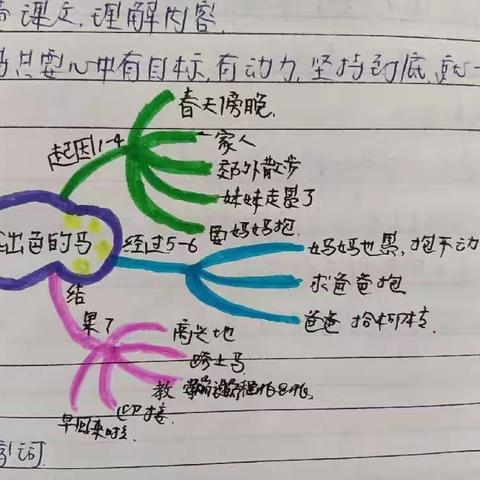 课文,理解内容.
只要心中有目标,有动力,坚持到底,就一
春天傍晚.
起因1-4
一家人
郊外散步
妹妹走累了
要妈妈抱.
出色的马
经过5-6
妈妈也累,抱不动
求爸爸抱
爸爸 拾树枝
结
果7
高兴地
跨上马
教
迎接.
早回来时
词